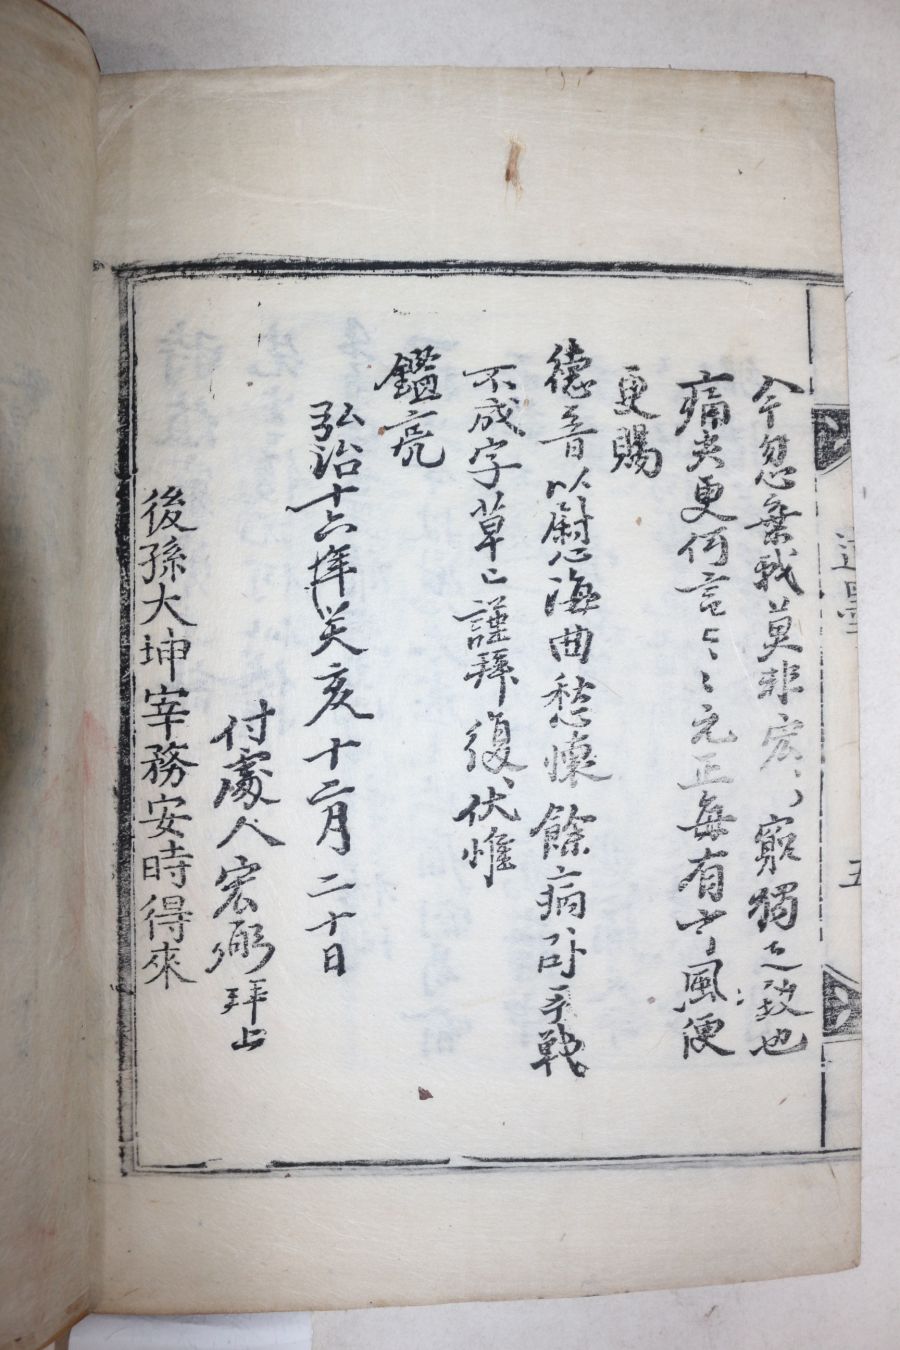 今忽棄我莫非宏〻窮獨之致也
痛哭更何言〻〻元正每有 風便
更賜
德音以慰海曲愁懷餘病卧手戰
不成字草〻謹拜復〻伏惟
鑑亮
弘治十六年癸亥十二月二十日
付處人宏弼拜上
後孫大坤宰務安時得來
遺墨
五